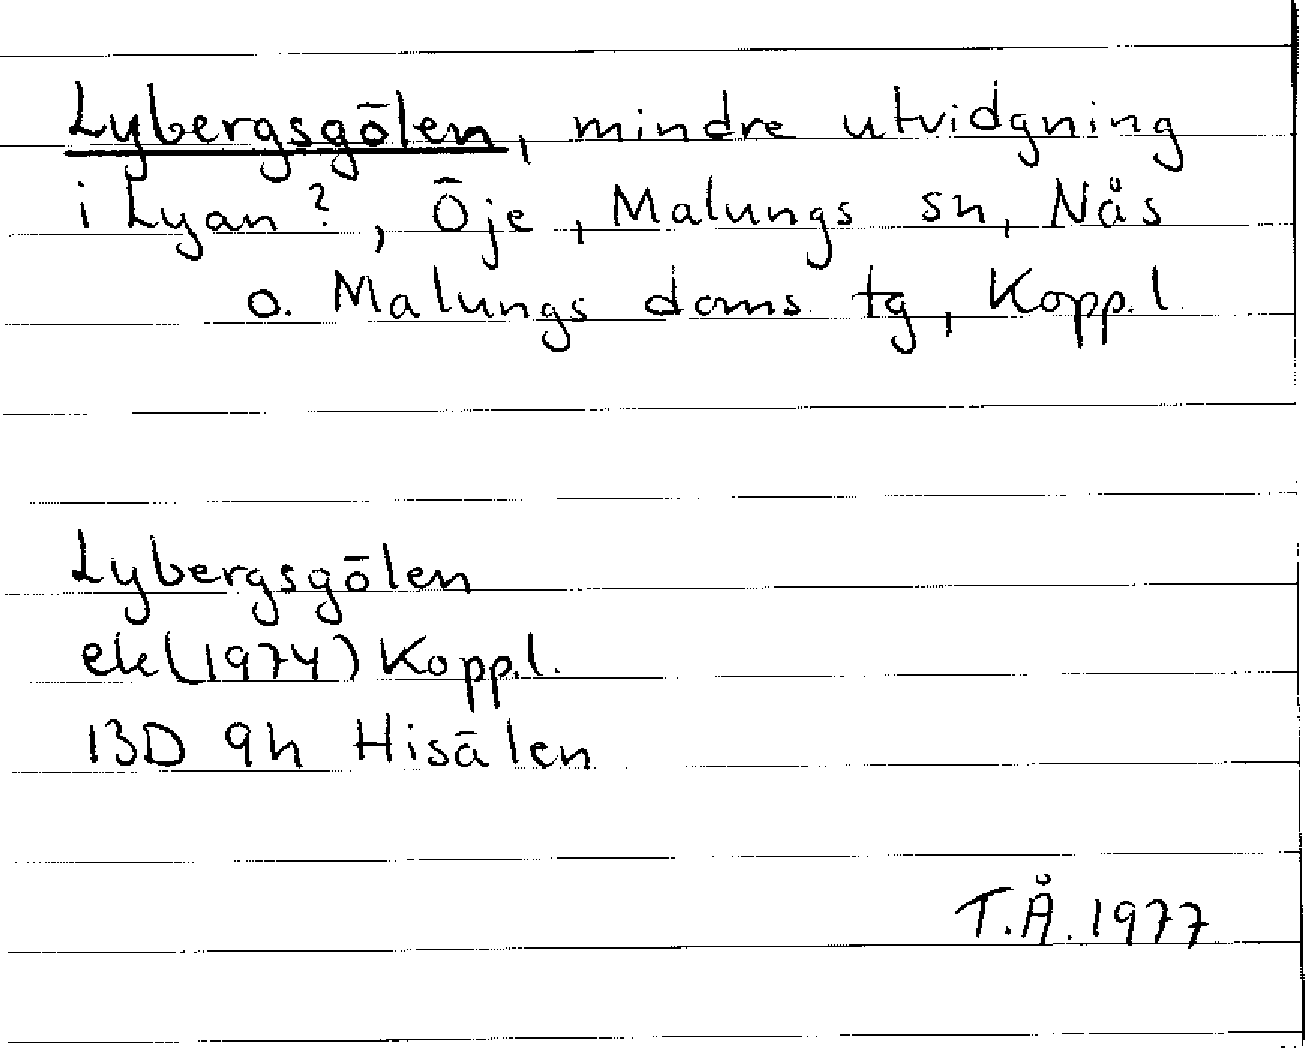 Lybergsgölen, mindre utvidgning
i Lyan?, Öje, Malungs sn, Nås
o. Malungs doms tg, Kopp.l
Lybergsgölen
ek (1974) Kopp.l.
13D 9h Hisälen
T.Å. 1977